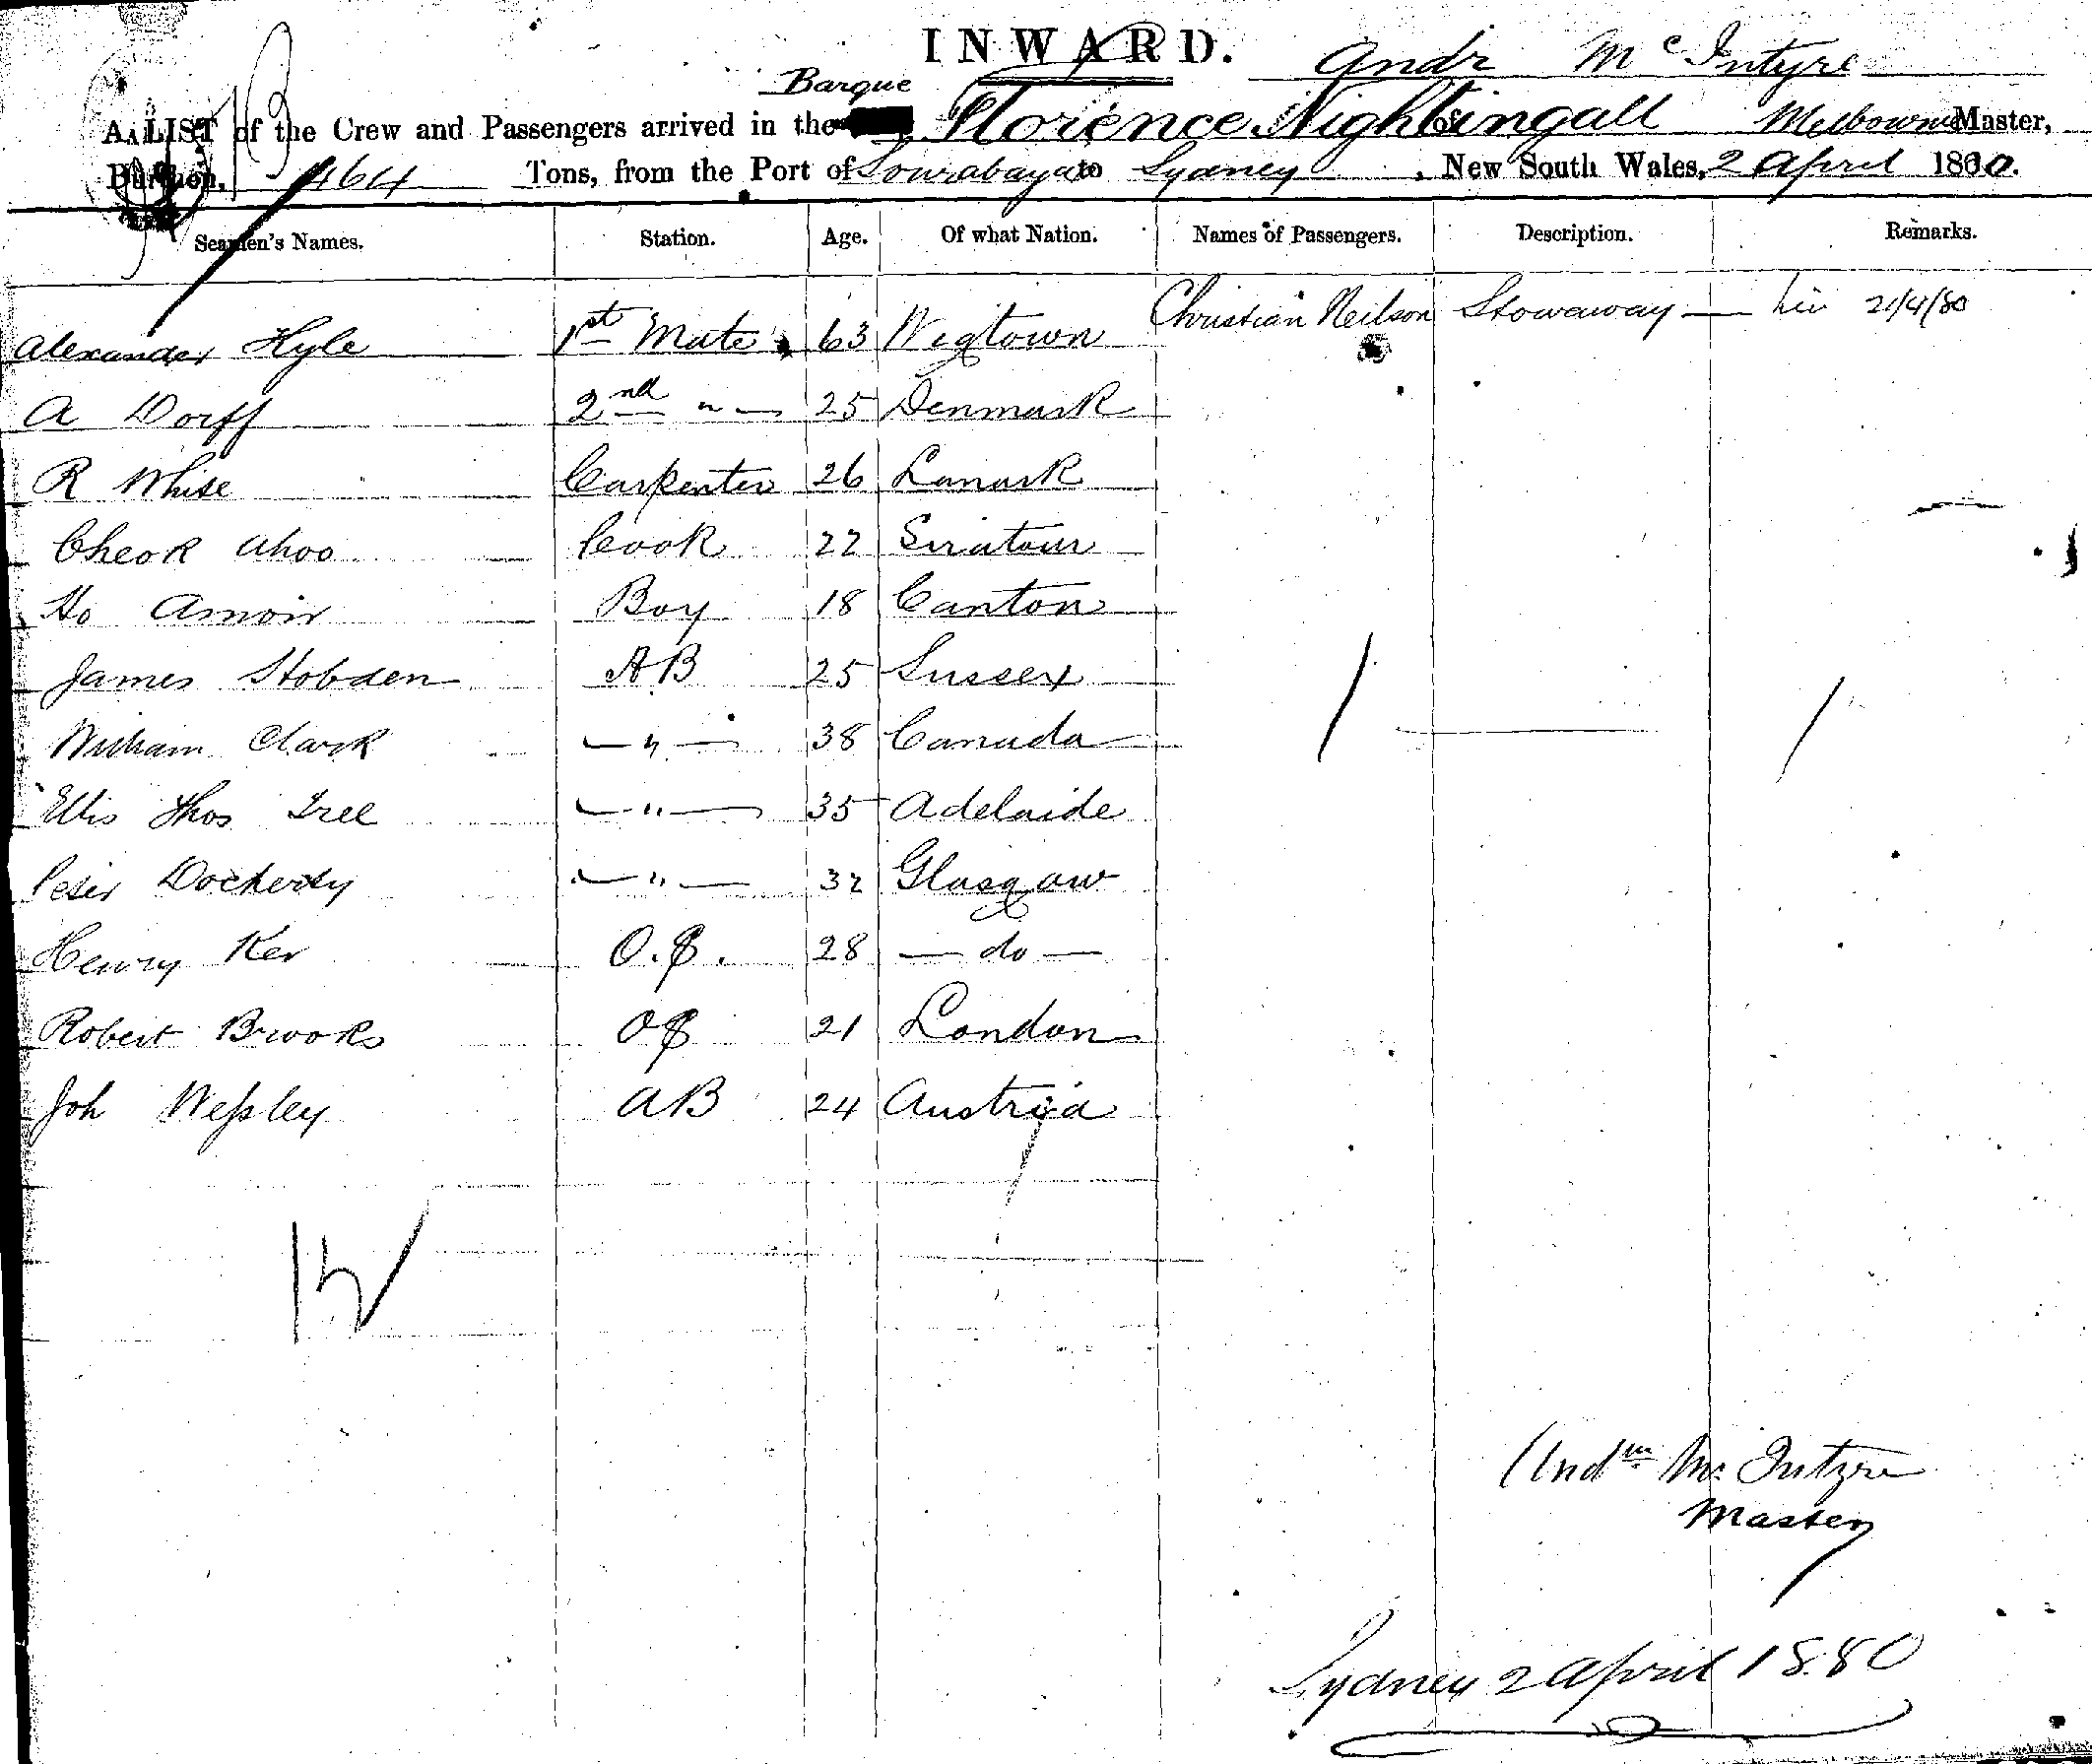 INWARD. Andr McIntyre
Barque
A LIST of the Crew and Passengers arrived in the Florence Nightingall of Melbourne Master,
Burthen, 464 Tons, from the Port of Sourabaya to Sydney, New South Wales, 2 April 1880.
Seamen's Names. Station. Age. Of what Nation. Names of Passengers. Description. Remarks.
Alexander Hyle 1st Mate 63 Wigtown Christian Neilson Stowaway — 2/4/80
A Dorff 2nd " 25 Denmark
R White Carpenter 26 Lanark
Cheok Ahoo Cook 22
Ho Amoir Boy 18 Canton
James Hobden AB 25 Sussex
William Clark — " — 38 Canada
Ellis Thos Tree — " — 35 Adelaide
Peter Docherty — " — 32 Glasgow
Henry Ker O.S. 28 — do —
Robert Brooks OS 21 London
Joh Wessley AB 24 Austria
12
McIntyre
Master
Sydney 2 April 1880